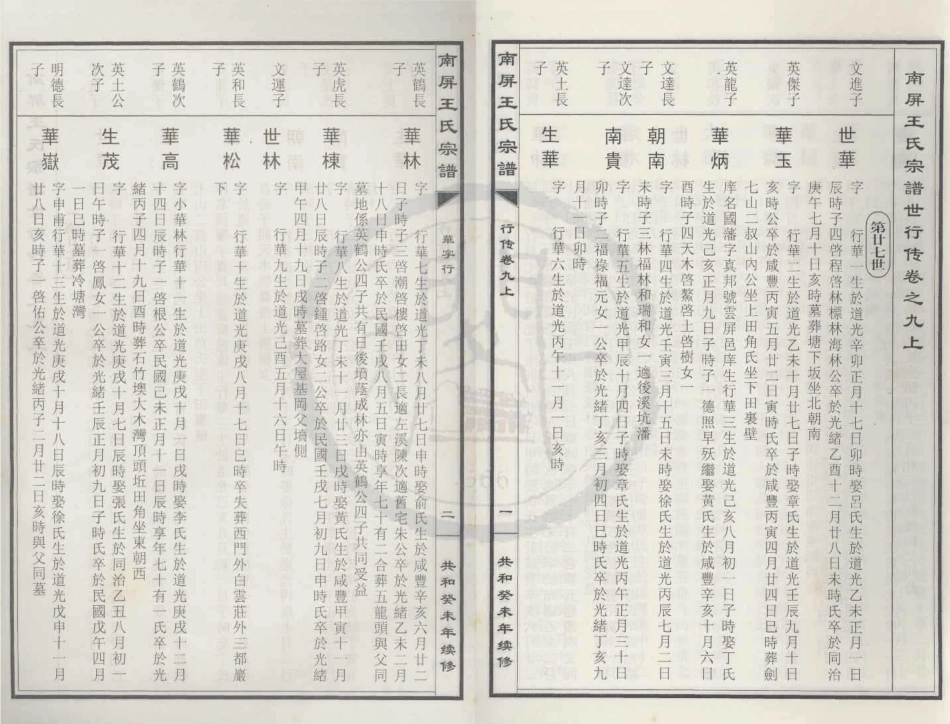 南屏王氏宗譜世行传卷之九上
第廿七世
文進子
世華
字　行華一生於道光辛卯正月十七日卯時娶呂氏生於道光乙未正月一日
辰時子四啓程啓林標林海林公卒於光緒乙酉十二月廿八日未時氏卒於同治
庚午七月十日亥時墓葬塘下坂坐北朝南
英傑子
華玉
字　行華二生於道光乙未十月廿七日子時娶章氏生於道光壬辰九月十日
亥時公卒於咸豐丙寅五月廿二日寅時氏卒於咸豐丙寅四月廿四日巳時葬劍
七山二叔山內公坐上田角氏坐下田裏壁
英龍子
華炳
庠名國藩字真邦號雲屏邑庠生行華三生於道光己亥八月初一日子時娶丁氏
生於道光己亥正月九日子時子一德照早殀繼娶黃氏生於咸豐辛亥十月六日
酉時子四天木啓鰲啓上啓樹女一
文達長子
朝南
字　行華四生於道光壬寅三月十五日未時娶徐氏生於道光丙辰七月二日
未時子三林福林和瑞和女一適後溪坑潘
文達次子
南貴
字　行華五生於道光甲辰十月四日子時娶章氏生於道光丙午正月三十日
卯時子二福祿福元女一公卒於光緒丁亥三月初四日巳時氏卒於光緒丁亥九
月十一日卯時
英土長子
生華
字　行華六生於道光丙午十一月一日亥時
南屏王氏宗譜
行传卷九上
一
共和癸未年续修
南屏王氏宗譜
華字行
二
共和癸未年续修
英鶴長子
華林
字　行華七生於道光丁未八月廿七日申時娶俞氏生於咸豐辛亥六月廿二
日子時子三啓潮啓樓啓田女二長適左溪陳次適舊宅朱公卒於光緒乙未二月
十八日申時氏卒於民國壬戌八月五日寅時享年七十有二合葬五龍頭與父同
墓地係英鶴公四子共有日後墳蔭成林亦由英鶴公四子共同受益
英虎長子
華棟
字　行華八生於道光丁未十一月廿三日戌時娶黃氏生於咸豐甲寅十一月
廿八日辰時子二啓鍾啓路女二公卒於民國壬戌七月初九日申時氏卒於光緒
甲午四月十九日戌時墓葬大屋基岡父墳側
文運子
世林
字　行華九生於道光己酉五月十六日午時
英和長子
華松
字　行華十生於道光庚戌八月十七日巳時卒失葬西門外白雲莊外三都巖
下
英鶴次子
華高
字小華林行華十一生於道光庚戌十月一日戌時娶李氏生於道光庚戌十二月
十四日辰時子一啓根公卒民國己未正月十一日辰時享年七十有一氏卒於光
緒丙子四月十九日酉時葬石竹墺大木灣頂頭坵田角坐東朝西
英土公次子
生茂
字　行華十二生於道光庚戌十月七日辰時娶張氏生於同治乙丑八月初一
日午時子一啓鳳女一公卒於光緒壬辰正月初九日子時氏卒於民國戊午四月
一日巳時墓葬冷塘灣
明德長子
華嶽
字申甫行華十三生於道光庚戌十月十八日辰時娶徐氏生於道光戊申十一月
廿八日亥時子一啓佑公卒於光緒丙子二月廿二日亥時與父同墓